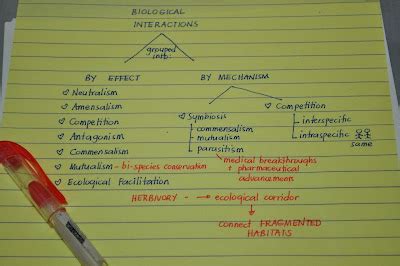 BIOLOGICAL
INTERACTIONS
grouped
into:
BY EFFECT
Neutralism
Amensalism
Competition
Antagonism
Commensalism
Mutualism - bi-species conservation
Ecological Facilitation
BY MECHANISM
Symbiosis
commensalism
mutualism
parasitism
medical breakthroughs
+ pharmaceutical
advancements
Competition
interspecific
intraspecific
same
HERBIVORY - → ecological corridor
connect FRAGMENTED
HABITATS